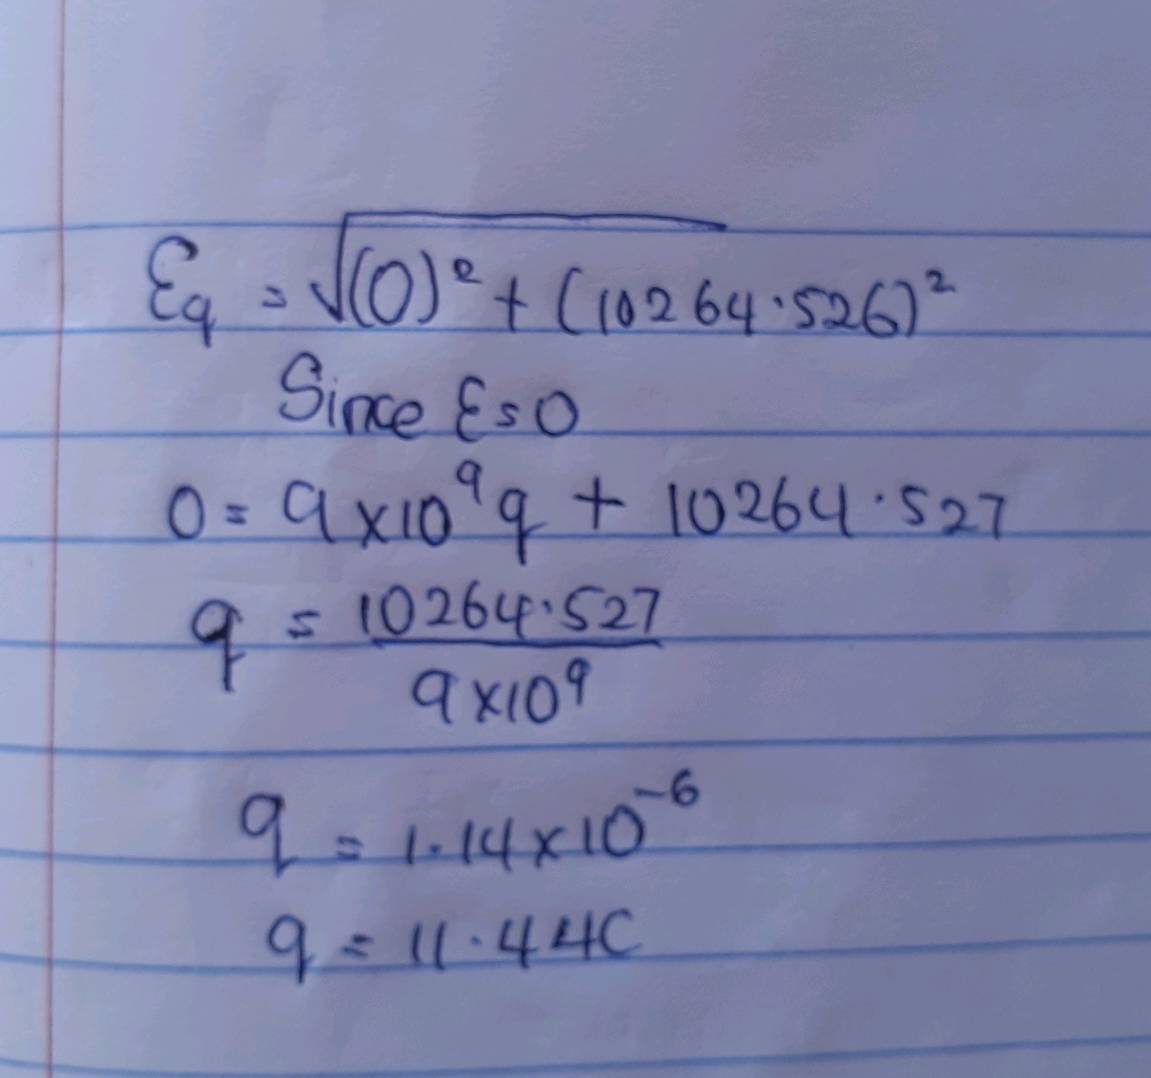 Eq = √(0)² + (10264.526)²
Since E=0
0 = 9×10⁹q + 10264.527
q = 10264.527
9×10⁹
q = 1.14×10⁻⁶
q = 11.44C